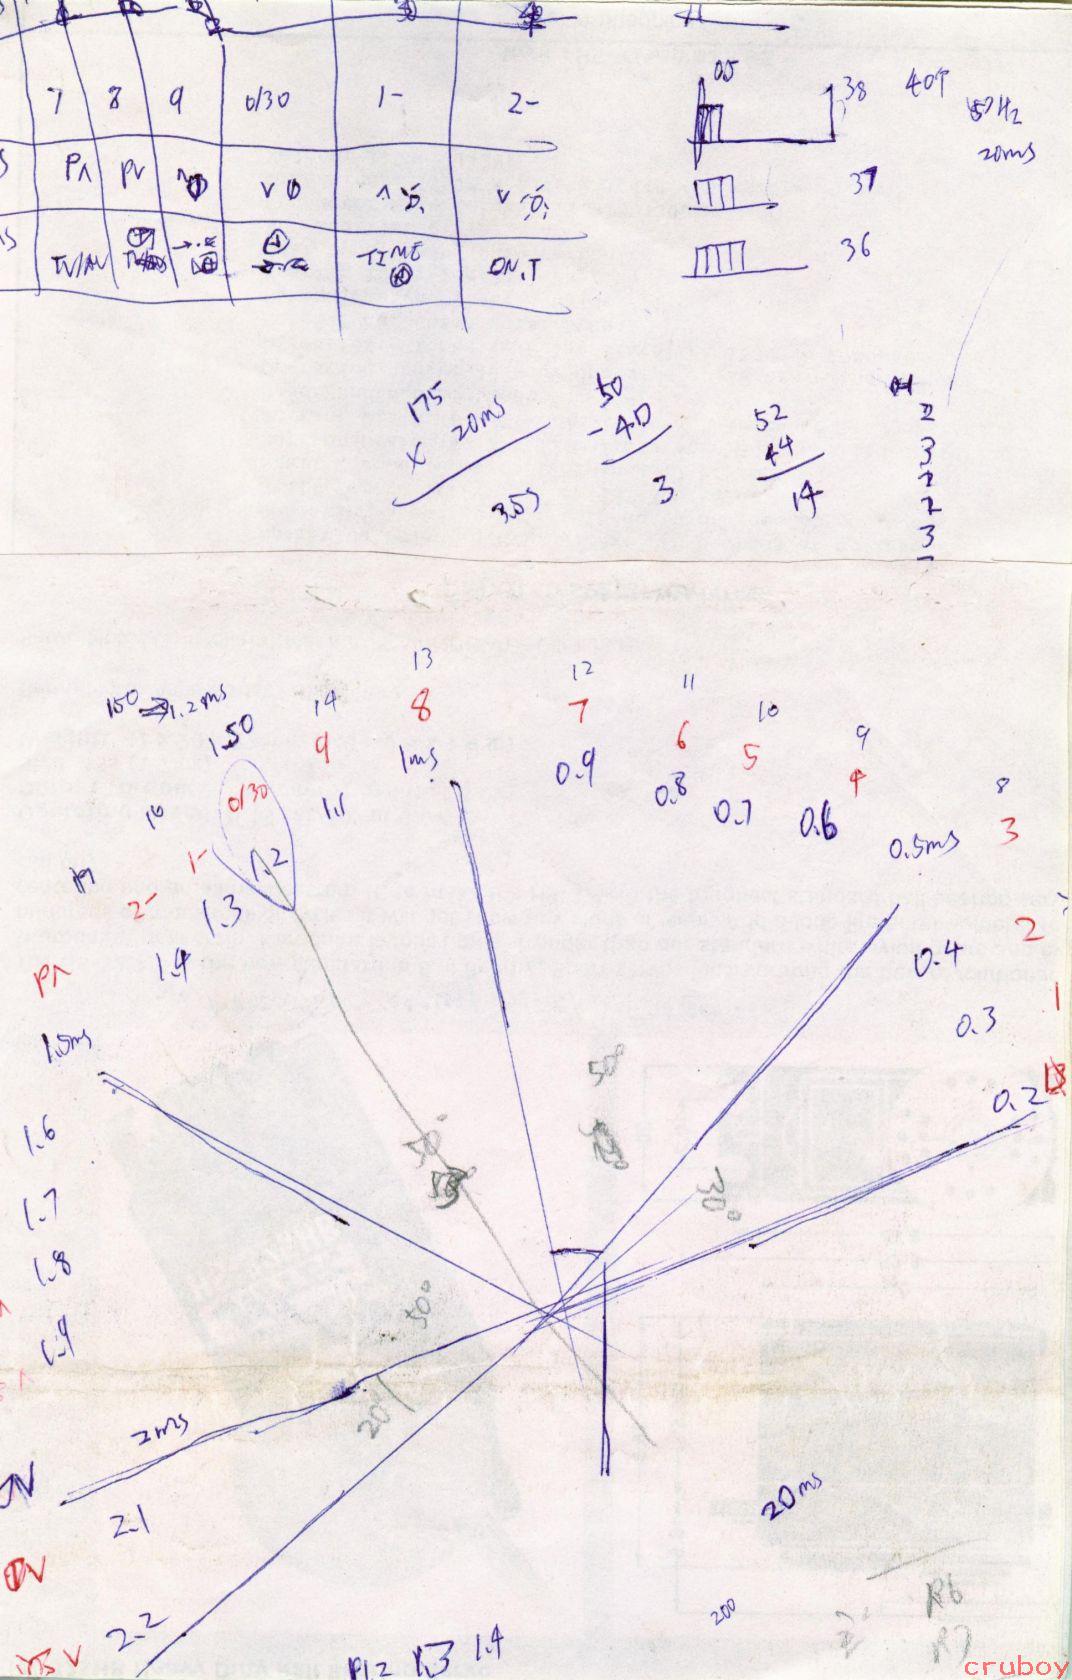 7 8 9 0/30 1- 2-
05
38 40T
50Hz
20ms
PΛ PV V Λ V
37
TV/AV TIME ON.T
36
175
× 20ms
3.5s
50
-40
3
52
44
14
2
3
2
2
3
13
8
1ms
12
7
0.9
11
6
0.8
10
5
0.7
9
4
0.6
8
3
0.5ms
150 → 1.2ms
1.50
14
9
1.1
0/30
1.2
1-
1.3
2-
1.4
PΛ
1.5ms
2
0.4
1
0.3
0.2
1.6
1.7
1.8
1.9
50°
30°
50°
20°
2ms
2.1
2.2
V
V
20ms
200
1.3 1.4
R6
R7
cruboy